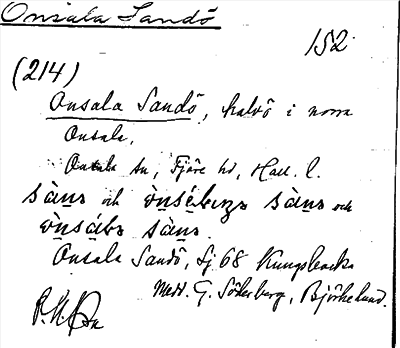 Onsala Sandö
152
(214)
Onsala Sandö, halvö i norra
Onsala.
Onsala sn, Fjäre hd, Hall. l.
sàns och ònsébırgs sàns och
ònsálar sàns.
Onsala Sandö, Sj 68 Kungsbacka
Medd. G. Söderberg, Björkelund.